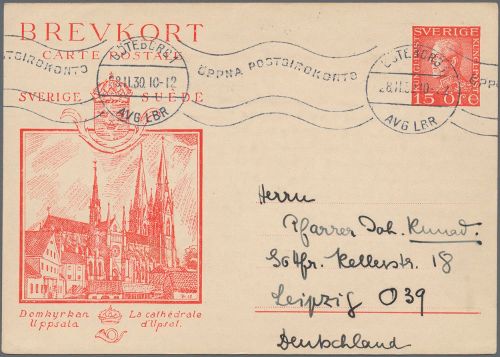 BREVKORT
CARTE POSTALE
SVERIGE SUEDE
GÖTEBORG 1
8.11.30.10-12
AVG LBR
POSTGIROKONTO
ÖPPNA POSTGIROKONTO
GÖTEBORG 1
AVG LBR
ÖPP
SVERIGE
15 ÖRE
Domkyrkan La cathédrale
Uppsala d'Upsal.
Herrn
Pfarrer Joh. Kunad.
Gottfr. Kellerstr. 18
Leipzig O39
Deutschland